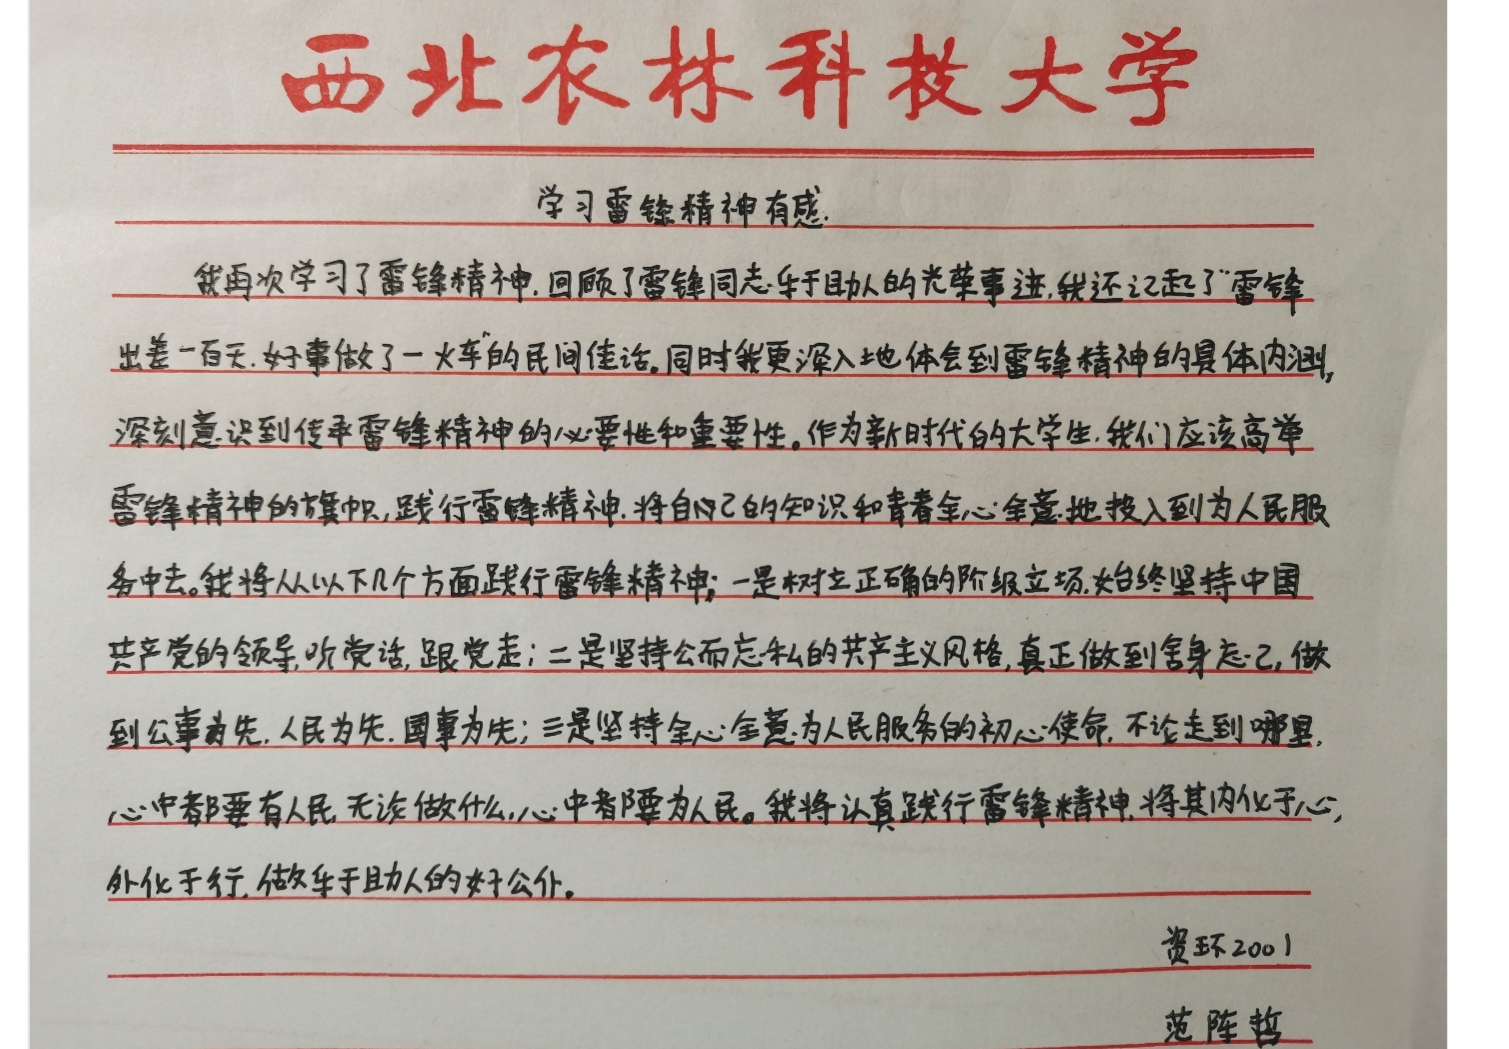 西北农林科技大学
学习雷锋精神有感.
我再次学习了雷锋精神,回顾了雷锋同志乐于助人的光荣事迹,我还记起了“雷锋
出差一百天,好事做了一火车”的民间佳话。同时我更深入地体会到雷锋精神的具体内涵,
深刻意识到传承雷锋精神的必要性和重要性。作为新时代的大学生,我们应该高举
雷锋精神的旗帜,践行雷锋精神,将自己的知识和青春全心全意地投入到为人民服
务中去。我将从以下几个方面践行雷锋精神:一是树立正确的阶级立场,始终坚持中国
共产党的领导,听党话,跟党走;二是坚持公而忘私的共产主义风格,真正做到舍身忘己,做
到公事为先,人民为先,国事为先;三是坚持全心全意为人民服务的初心使命,不论走到哪里,
心中都要有人民,无论做什么,心中都要为人民。我将认真践行雷锋精神,将其内化于心,
外化于行,做乐于助人的好公仆。
资环2001
范阵哲